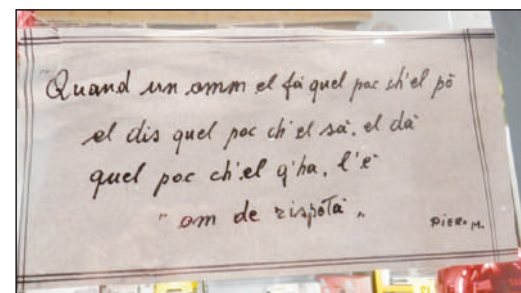 "Quand un omm el fà quel poc ch'el pò
el dis quel poc ch'el sà, el dà
quel poc ch'el g'ha, l'è
" om de rispetà "
PIER. M.